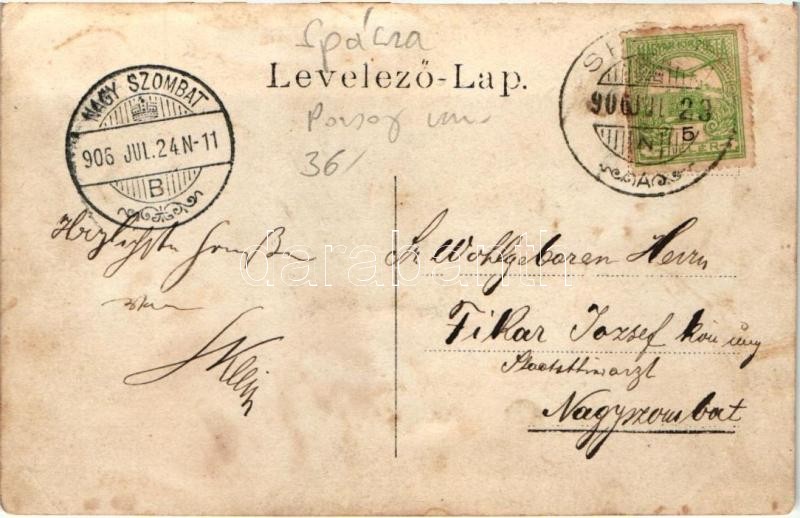 Spácza
Levelező-Lap.
Pozsony vm.
36/
NAGY SZOMBAT
906 JUL.24.N-11
B
906 JUL 23
N 5
A
MAGYAR KIR. POSTA
Herzlichste Grüße
von
Klein
Sr Wohlgeboren Herrn
Fikar Jozsef kön ung
Staatsthierarzt
Nagyszombat
darabanth